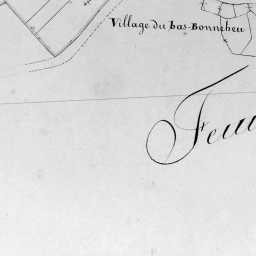 Village du bas-Bonneheu